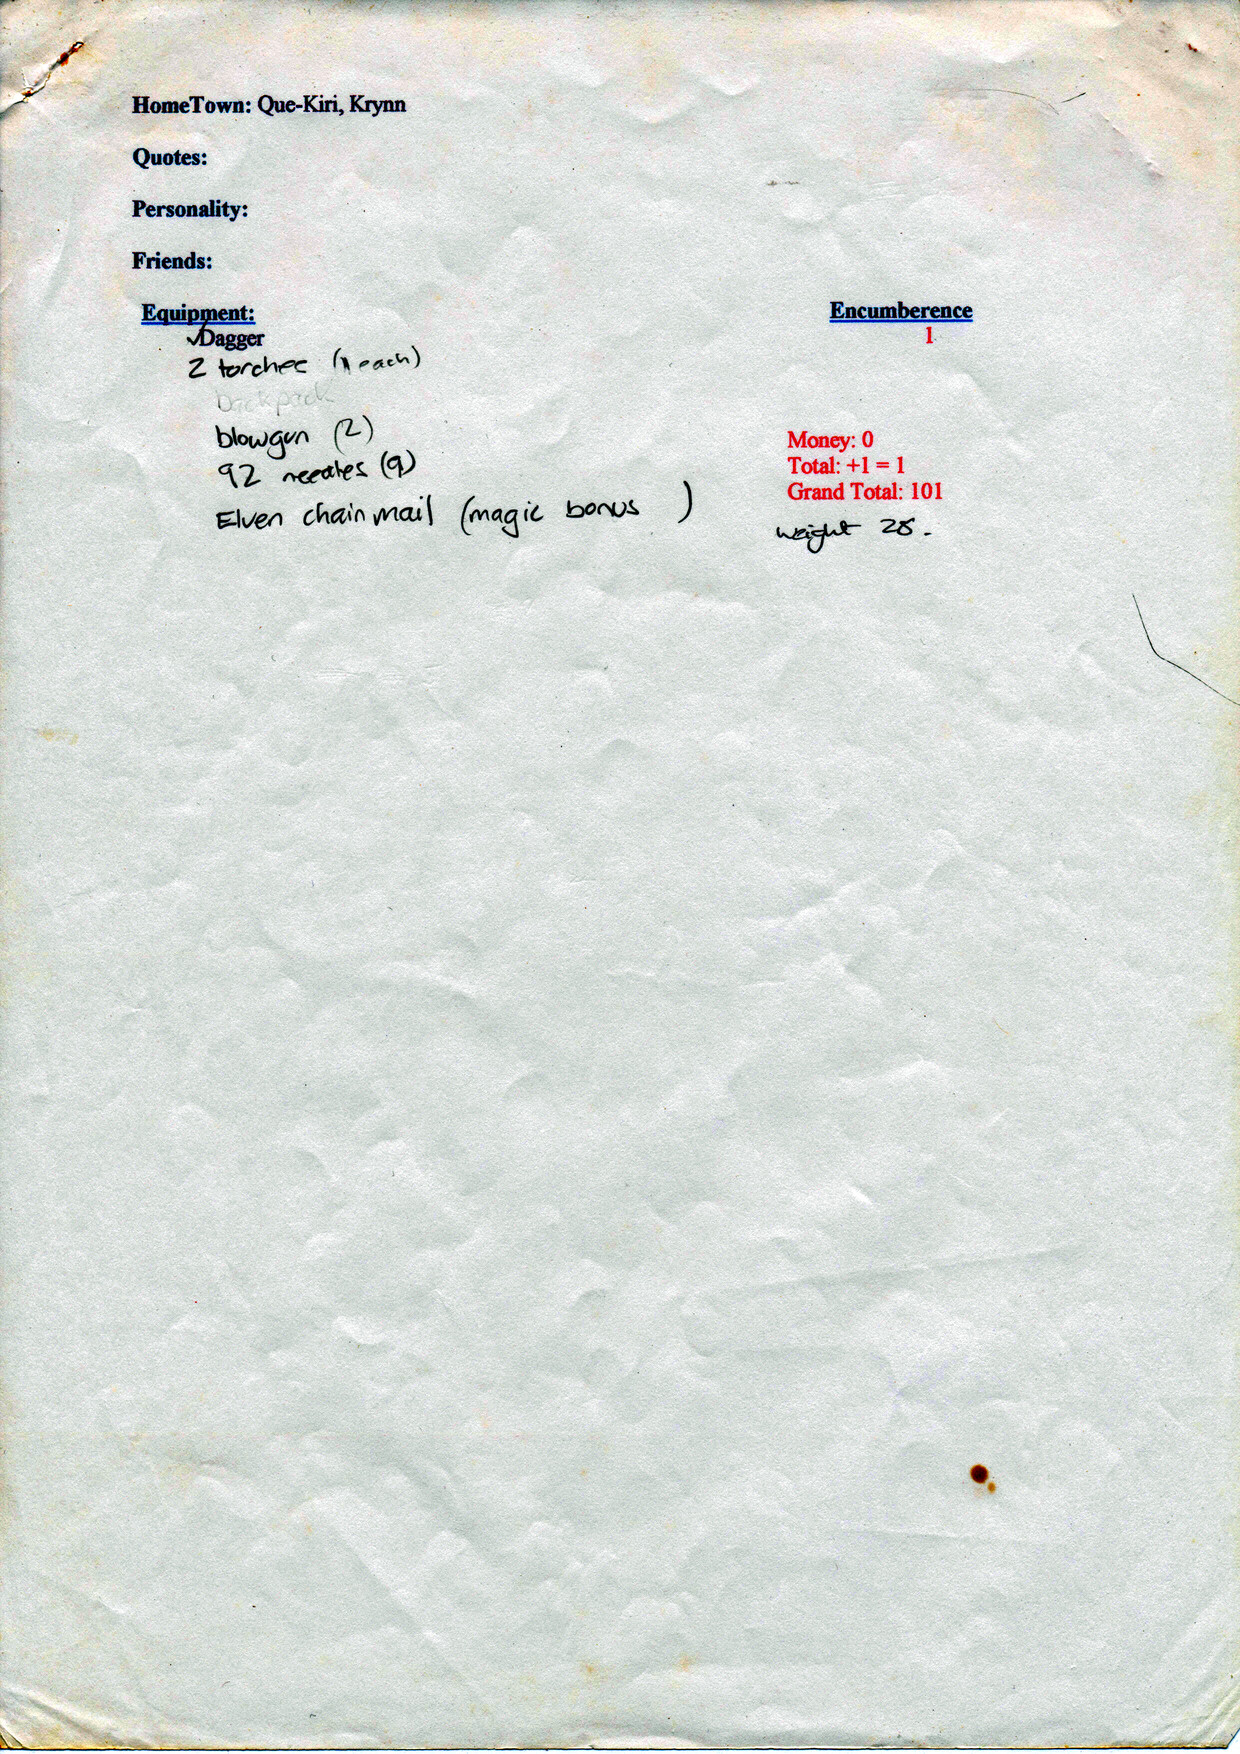 HomeTown: Que-Kiri, Krynn
Quotes:
Personality:
Friends:
Equipment:
Encumberence
Dagger
1
2 torches (1 each)
backpack
blowgun (2)
92 needles (9)
Elven chain mail (magic bonus )
Money: 0
Total: +1 = 1
Grand Total: 101
weight 28.